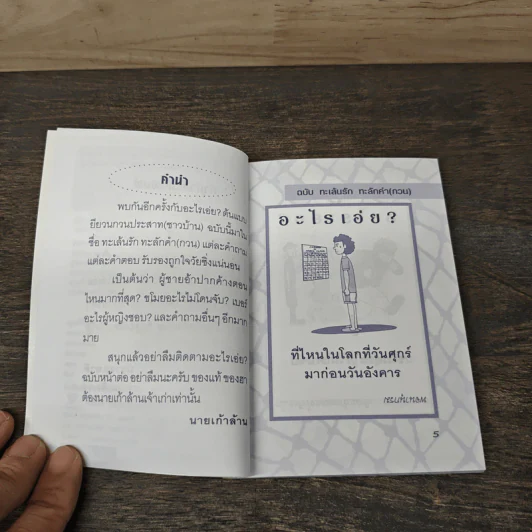 คำนำ
พบกันอีกครั้งกับอะไรเอ่ย? ต้นแบบก
ยียวนกวนประสาท(ชาวบ้าน) ฉบับนี้มาใน
ชื่อ ทะเล้นรัก ทะลักคำ(กวน) แต่ละคำถาม
แต่ละคำตอบ รับรองถูกใจวัยซิ่งแน่นอน
เป็นต้นว่า ผู้ชายอ้าปากค้างตอน
ไหนมากที่สุด? ขโมยอะไรไม่โดนจับ? เบอร์
อะไรผู้หญิงชอบ? และคำถามอื่นๆ อีกมาก
มาย
สนุกแล้วอย่าลืมติดตามอะไรเอ่ย?
ฉบับหน้าต่อ อย่าลืมนะครับ ของแท้ ของฮา
ต้องนายเก้าล้านเจ้าเก่าเท่านั้น
นายเก้าล้าน
ฉบับ ทะเล้นรัก ทะลักคำ(กวน)
อะไรเอ่ย?
ที่ไหนในโลกที่วันศุกร์
มาก่อนวันอังคาร
5